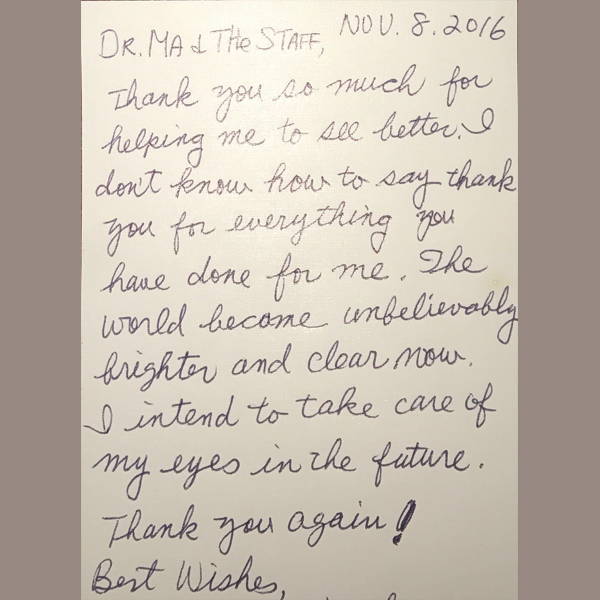 DR. MA & THE STAFF, NOV. 8. 2016
Thank you so much for
helping me to see better. I
don't know how to say thank
you for everything you
have done for me. The
world become unbelievably
brighter and clear now.
I intend to take care of
my eyes in the future.
Thank you again!
Best Wishes,